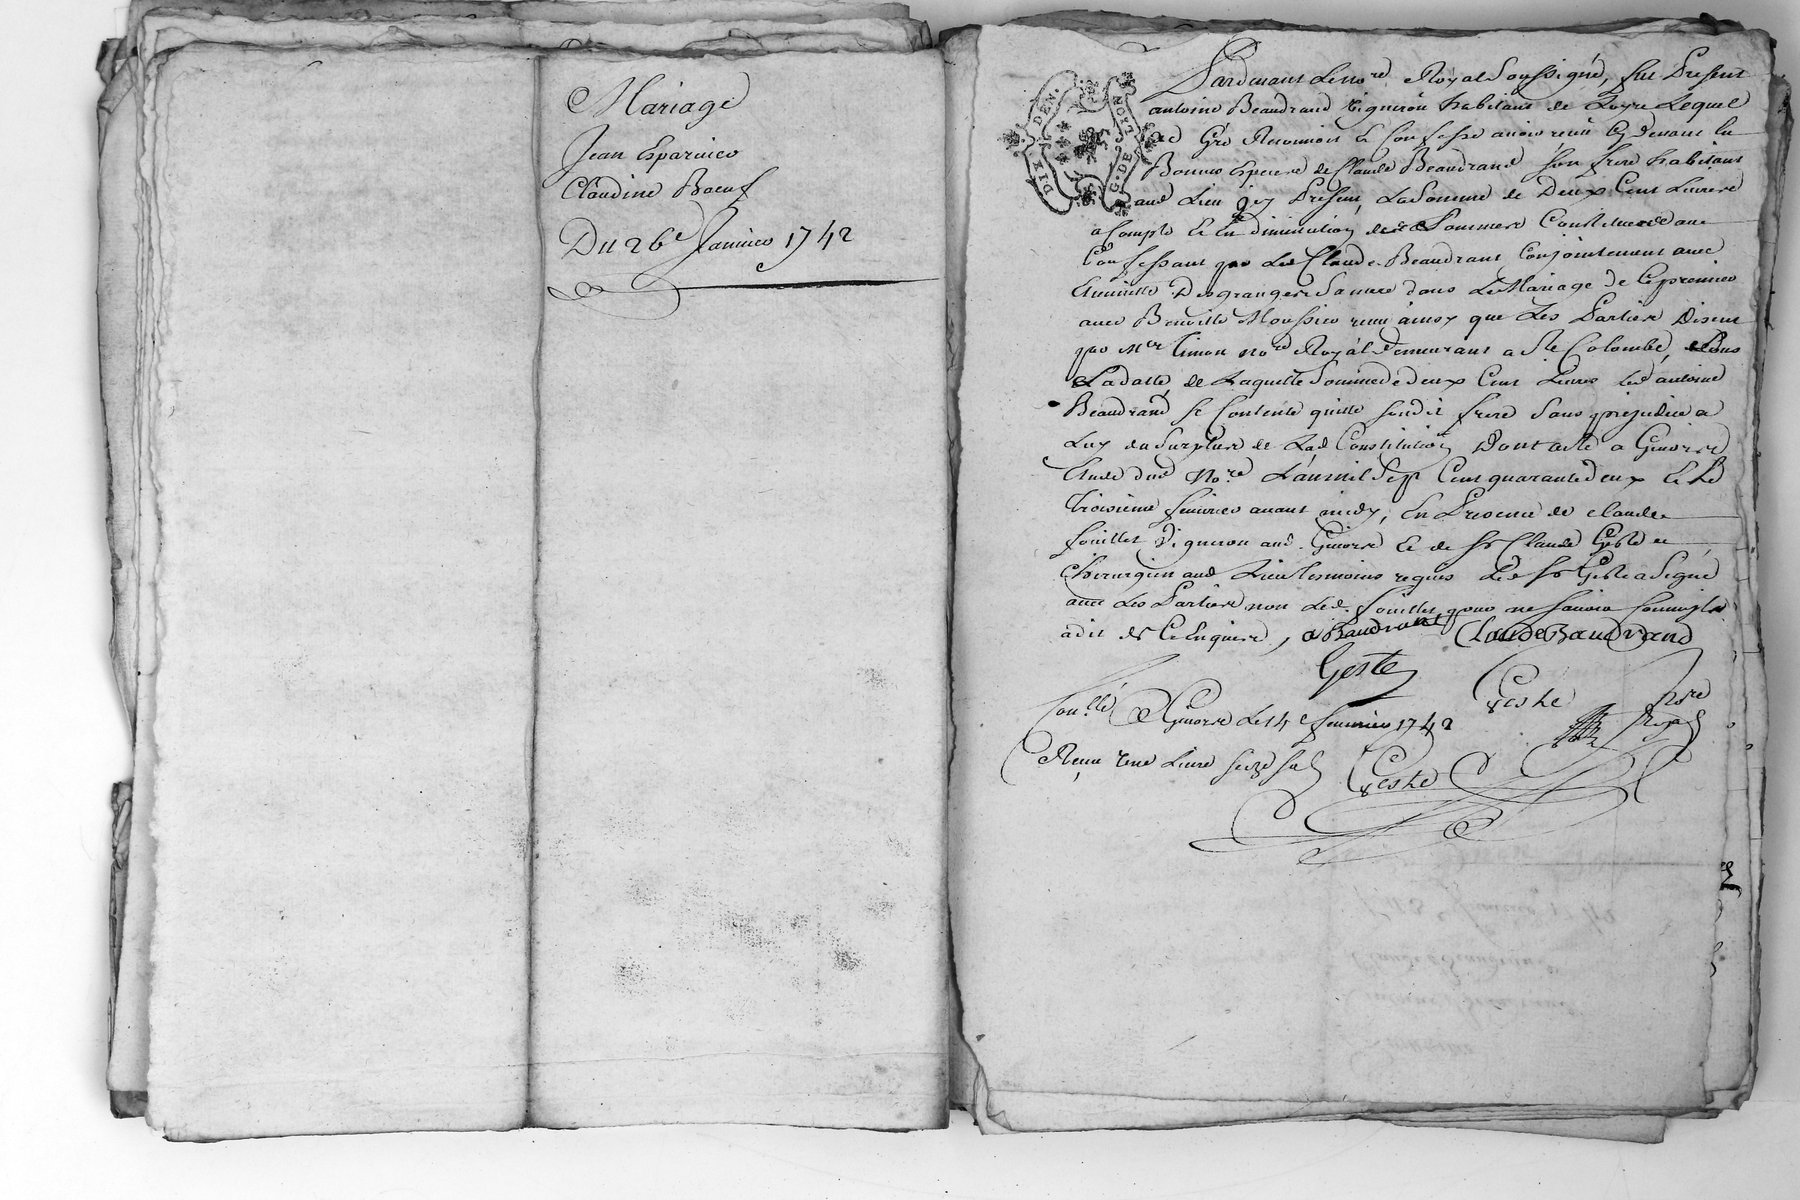 Mariage
Jean Esparvier
Claudine Boeuf
Du 26e Janvier 1742
DIX DEN.
G. DE LYON
Pardevant Le no.re Royal Soussigné, fut Present
antoine Beaudrand vigneron habitant de Loyre Lequel
de Gré Reconnoit et Confesse avoir reçu cy devant en
Bonnes Especes de Claude Beaudrand son frere habitant
aud Lieu icy Present, La Somme de Deux Cent Livres
a Compte et en diminution de Sommes Constituée
Confessant que led Claude Beaudrant Conjointement avec
Desgranges Sa mere dans Le Mariage de Ce premier
avec Benoitte Moussier reçu ainsy que Les Parties Disent
par Me Simon no.re Royal demeurant a Ste Colombe, Sous
Sa datte, de Laquelle Somme de deux Cent Livres led antoine
Beaudrand se Contente quitte sondit frere Sans prejudice a
Luy du Surplus de Lad Constitution Dont acte a Givors
Etude dud No.re L'an mil Sept Cent quarante deux et Le
troisieme fevrier avant midy, En Presence de claude
fouillet Vigneron aud. Givors et de Sr Claude Geste
Chirurgien aud Lieu temoins requis Led Sr Geste a Signé
avec Les Parties non Led. fouillet pour ne savoir comme il
a dit de Ce Enquis, a Baudrand Claude Baudrand
Geste
Geste no.re Royal
Con.llé A Givors Le 14e fevrier 1742
Reçu une Livre seize sols Geste